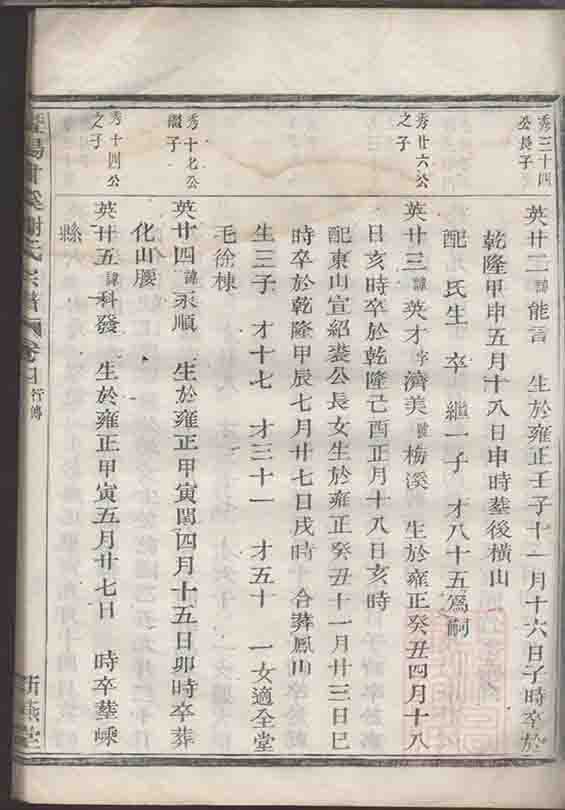 秀三十四
公長子
英廿二諱能言 生於雍正壬子十一月十六日子時卒於
乾隆甲申五月十八日申時塟後橫山
配 氏生 卒 繼一子 才八十五爲嗣
秀廿六公
之子
英廿三諱英才字濟美號梅溪 生於雍正癸丑四月十八
日亥時卒於乾隆己酉正月十八日亥時
配東山宣紹裘公長女生於雍正癸丑十一月廿三日巳
時卒於乾隆甲辰七月廿七日戌時 合葬鳳山
生三子 才十七 才三十一 才五十 一女適全堂
毛徐棟
秀十七公
繼子
英廿四諱永順 生於雍正甲寅閏四月十五日卯時卒葬
化山腰
秀十四公
之子
英廿五諱科發 生於雍正甲寅五月廿七日 時卒塟嵊
縣
暨陽 溪謝氏宗譜 卷 行傳
燕堂